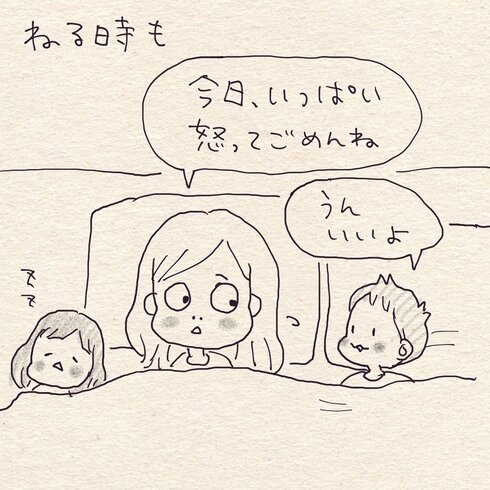 ねる時も
今日、いっぱい
怒ってごめんね
うん
いいよ
スー
スー